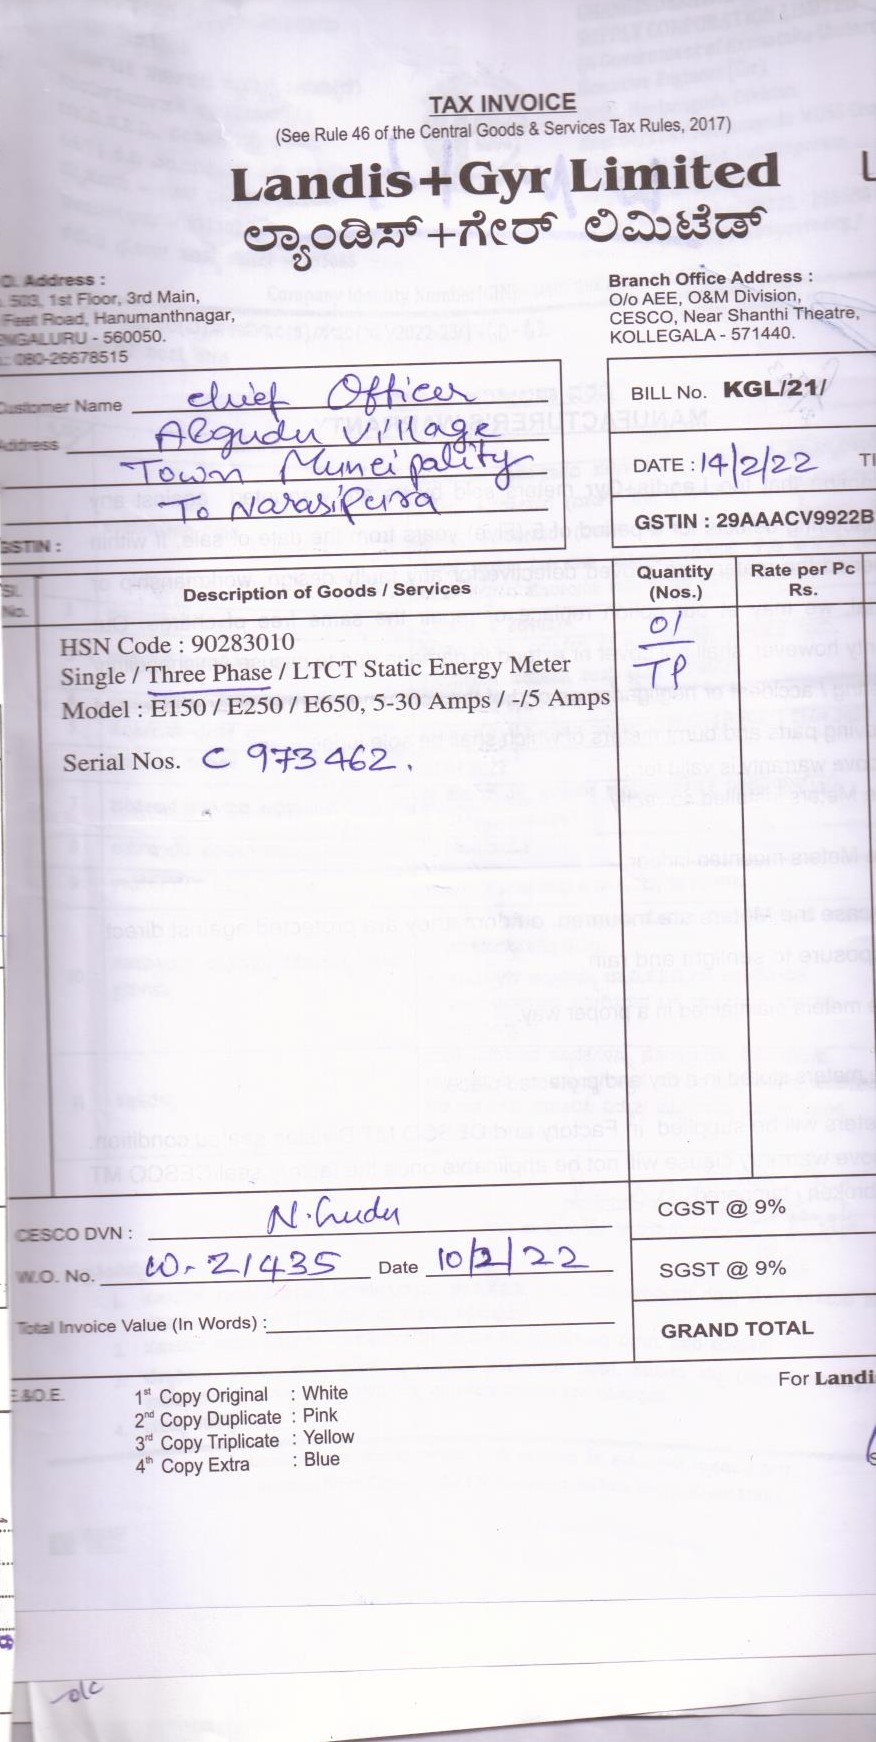 TAX INVOICE
(See Rule 46 of the Central Goods & Services Tax Rules, 2017)
Landis+Gyr Limited
ಲ್ಯಾಂಡಿಸ್+ಗೇರ್ ಲಿಮಿಟೆಡ್
O. Address :
503, 1st Floor, 3rd Main,
Feet Road, Hanumanthnagar,
ENGALURU - 560050.
: 080-26678515
Branch Office Address :
O/o AEE, O&M Division,
CESCO, Near Shanthi Theatre,
KOLLEGALA - 571440.
Customer Name chief Officer
Address Algudu Village
Town Muncipality
To Narasipura
GSTIN :
BILL No. KGL/21/
DATE : 14/2/22 TI
GSTIN : 29AAACV9922B
Sl. No. Description of Goods / Services Quantity (Nos.) Rate per Pc Rs.
HSN Code : 90283010 01
Single / Three Phase / LTCT Static Energy Meter TP
Model : E150 / E250 / E650, 5-30 Amps / -/5 Amps
Serial Nos. C 973462.
CESCO DVN : CGST @ 9%
W.O. No. W-21435 Date 10/2/22 SGST @ 9%
Total Invoice Value (In Words) : GRAND TOTAL
E.&O.E. For Landi
1st Copy Original : White
2nd Copy Duplicate : Pink
3rd Copy Triplicate : Yellow
4th Copy Extra : Blue
olc